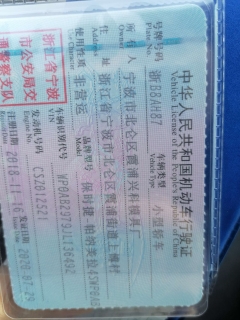 中华人民共和国机动车行驶证
Vehicle License of the People's Republic of China
号牌号码 浙B8A687 车辆类型 小型轿车
Plate No. Vehicle Type
所有人 宁波市北仑区霞浦兴科模具厂
Owner
住址 浙江省宁波市北仑区霞浦街道上傅村
Address
使用性质 非营运 品牌型号 保时捷 帕纳美拉
Use Character Model
浙江省宁波市公安局交通警察支队
车辆识别代号
VIN
发动机号码 CS2612521
Engine No.
注册日期 2018-11-16 发证日期 2020-07-29